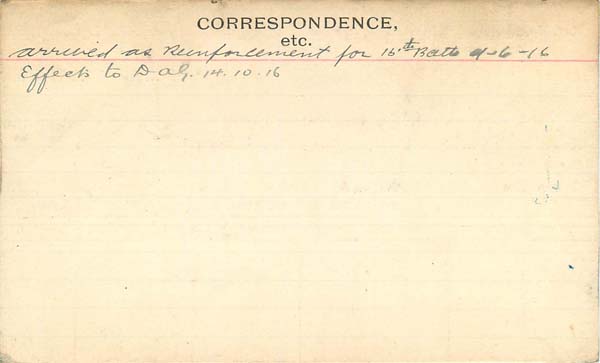 CORRESPONDENCE,
etc.
arrived as Reinforcement for 15th Batt 9-6-16
Effects to D.A.G. 14.10.16